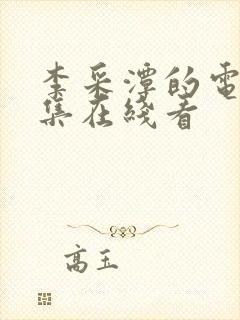 李采潭的電
集在綫看
高玉